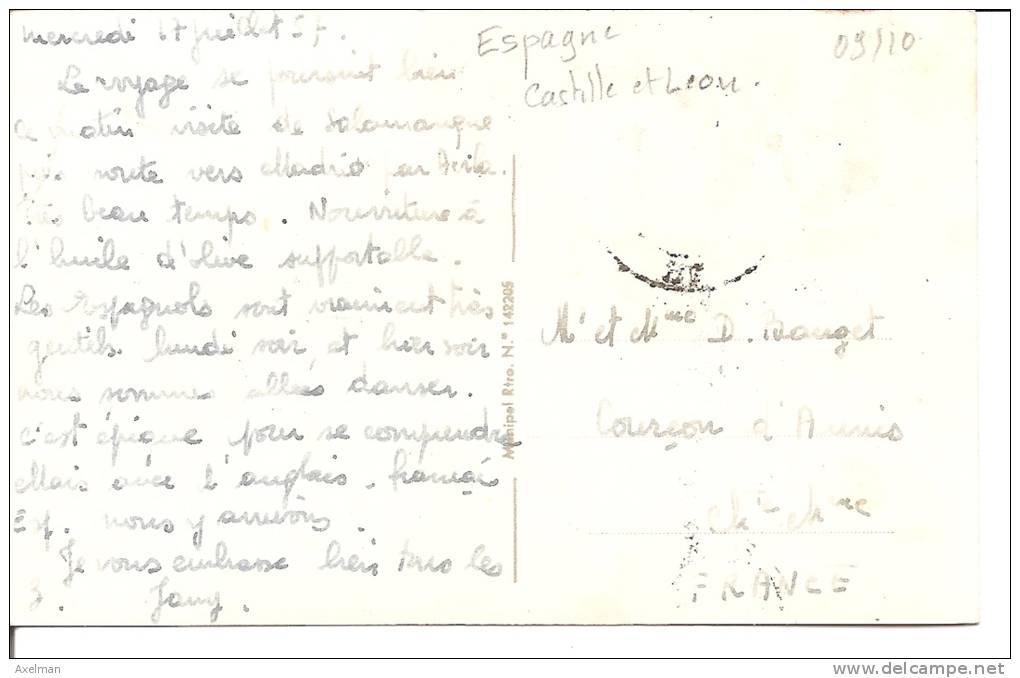 Mercredi 17 juillet 57.
Le voyage se poursuit bien
ce matin visite de Salamanque
puis route vers Madrid par Avila.
Très beau temps. Nourriture à
l'huile d'olive supportable.
Les Espagnols sont vraiment très
gentils. Lundi soir, et hier soir
nous sommes allées danser.
C'est épique pour se comprendre
Mais avec l'anglais, français
Esp. nous y arrivons.
Je vous embrasse bien tous les
3.
Espagne
Castille et Leon.
09/10
Manipel Rtro. N.º 142205
Mr et Mme D. Bauget
Courçon d'Aunis
Chte Mme
FRANCE
Axelman
delcampe.net